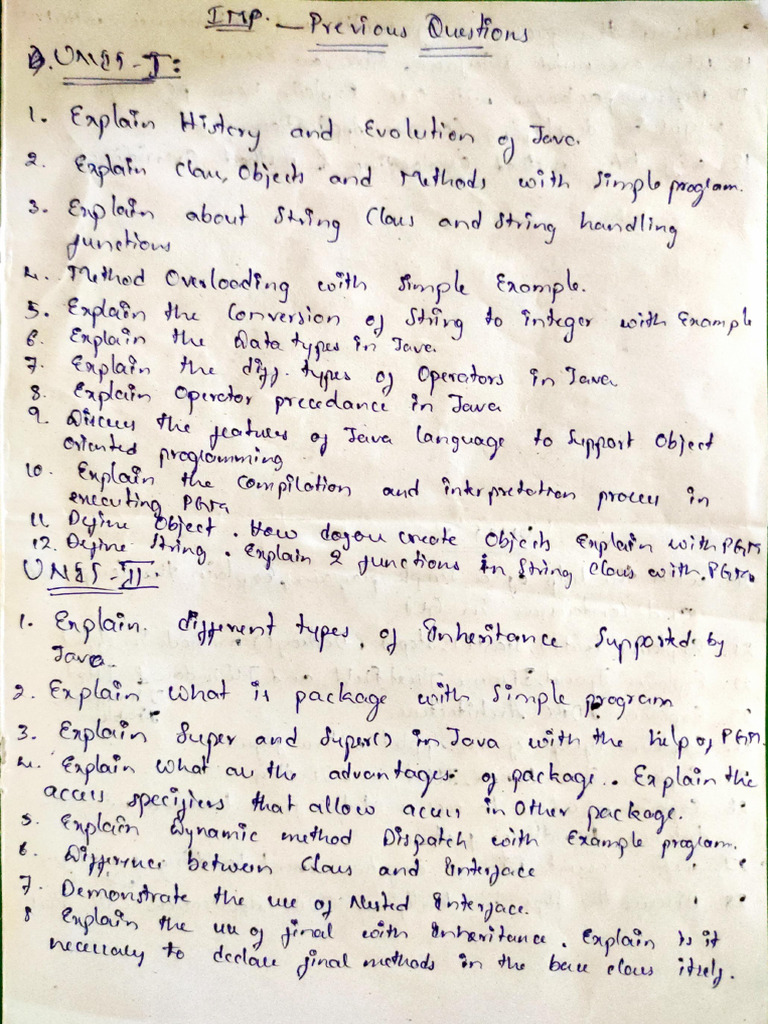 IMP. - Previous Questions
UNIT-I:
1. Explain History and Evolution of Java.
2. Explain Class, Objects and Methods with Simple program.
3. Explain about String Class and String handling
functions
4. Method Overloading with simple Example.
5. Explain the Conversion of String to integer with Example
6. Explain the Data types in Java.
7. Explain the diff. types of Operators in Java
8. Explain Operator precedance in Java
9. Discuss the features of Java language to Support Object
oriented programming
10. Explain the compilation and interpretation process in
executing PGM
11. Define Object. How do you create Objects Explain with PGM
12. Define String. Explain 2 functions in String Class with PGM.
UNIT-II:
1. Explain different types of Inheritance Supported by
Java.
2. Explain what is package with Simple program
3. Explain Super and Super() in Java with the help of PGM.
4. Explain what are the advantages of package. Explain the
access specifiers that allow access in Other package.
5. Explain Dynamic method Dispatch with Example program.
6. Difference between Class and Interface
7. Demonstrate the use of Nested Interface.
8 Explain the use of final with Inheritance. Explain Is it
necessary to declare final methods in the base class itself.